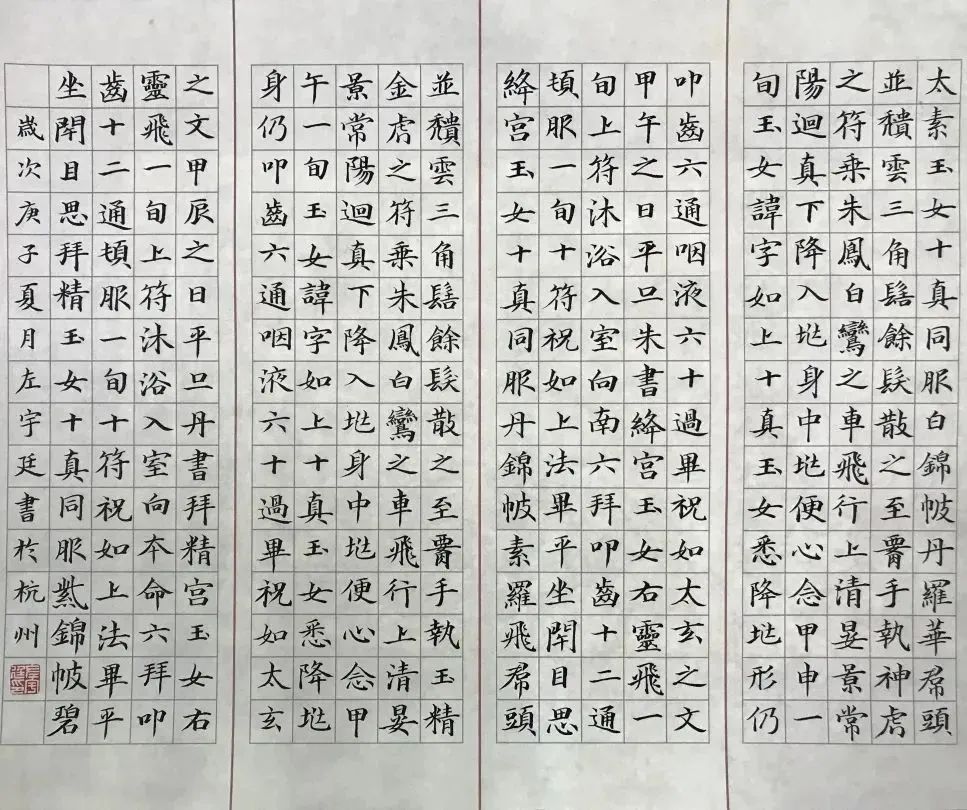 太素玉女十真同服白錦帔丹羅華帬頭
並穨雲三角髻餘髮散之至腰手執神虎
之符乗朱鳳白鸞之車飛行上清晏景常
陽迴真下降入𡉈身中𡉈便心念甲申一
旬玉女諱字如上十真玉女悉降𡉈形仍
叩齒六通咽液六十過畢祝如太玄之文
甲午之日平旦朱書絳宮玉女右靈飛一
旬上符沐浴入室向南六拜叩齒十二通
頓服一旬十符祝如上法畢平坐閇目思
絳宮玉女十真同服丹錦帔素羅飛帬頭
並穨雲三角髻餘髮散之至腰手執玉精
金虎之符乗朱鳳白鸞之車飛行上清晏
景常陽迴真下降入𡉈身中𡉈便心念甲
午一旬玉女諱字如上十真玉女悉降𡉈
身仍叩齒六通咽液六十過畢祝如太玄
之文甲辰之日平旦丹書拜精宮玉女右
靈飛一旬上符沐浴入室向本命六拜叩
齒十二通頓服一旬十符祝如上法畢平
坐閇目思拜精玉女十真同服紫錦帔碧
歲次庚子夏月左宇廷書於杭州